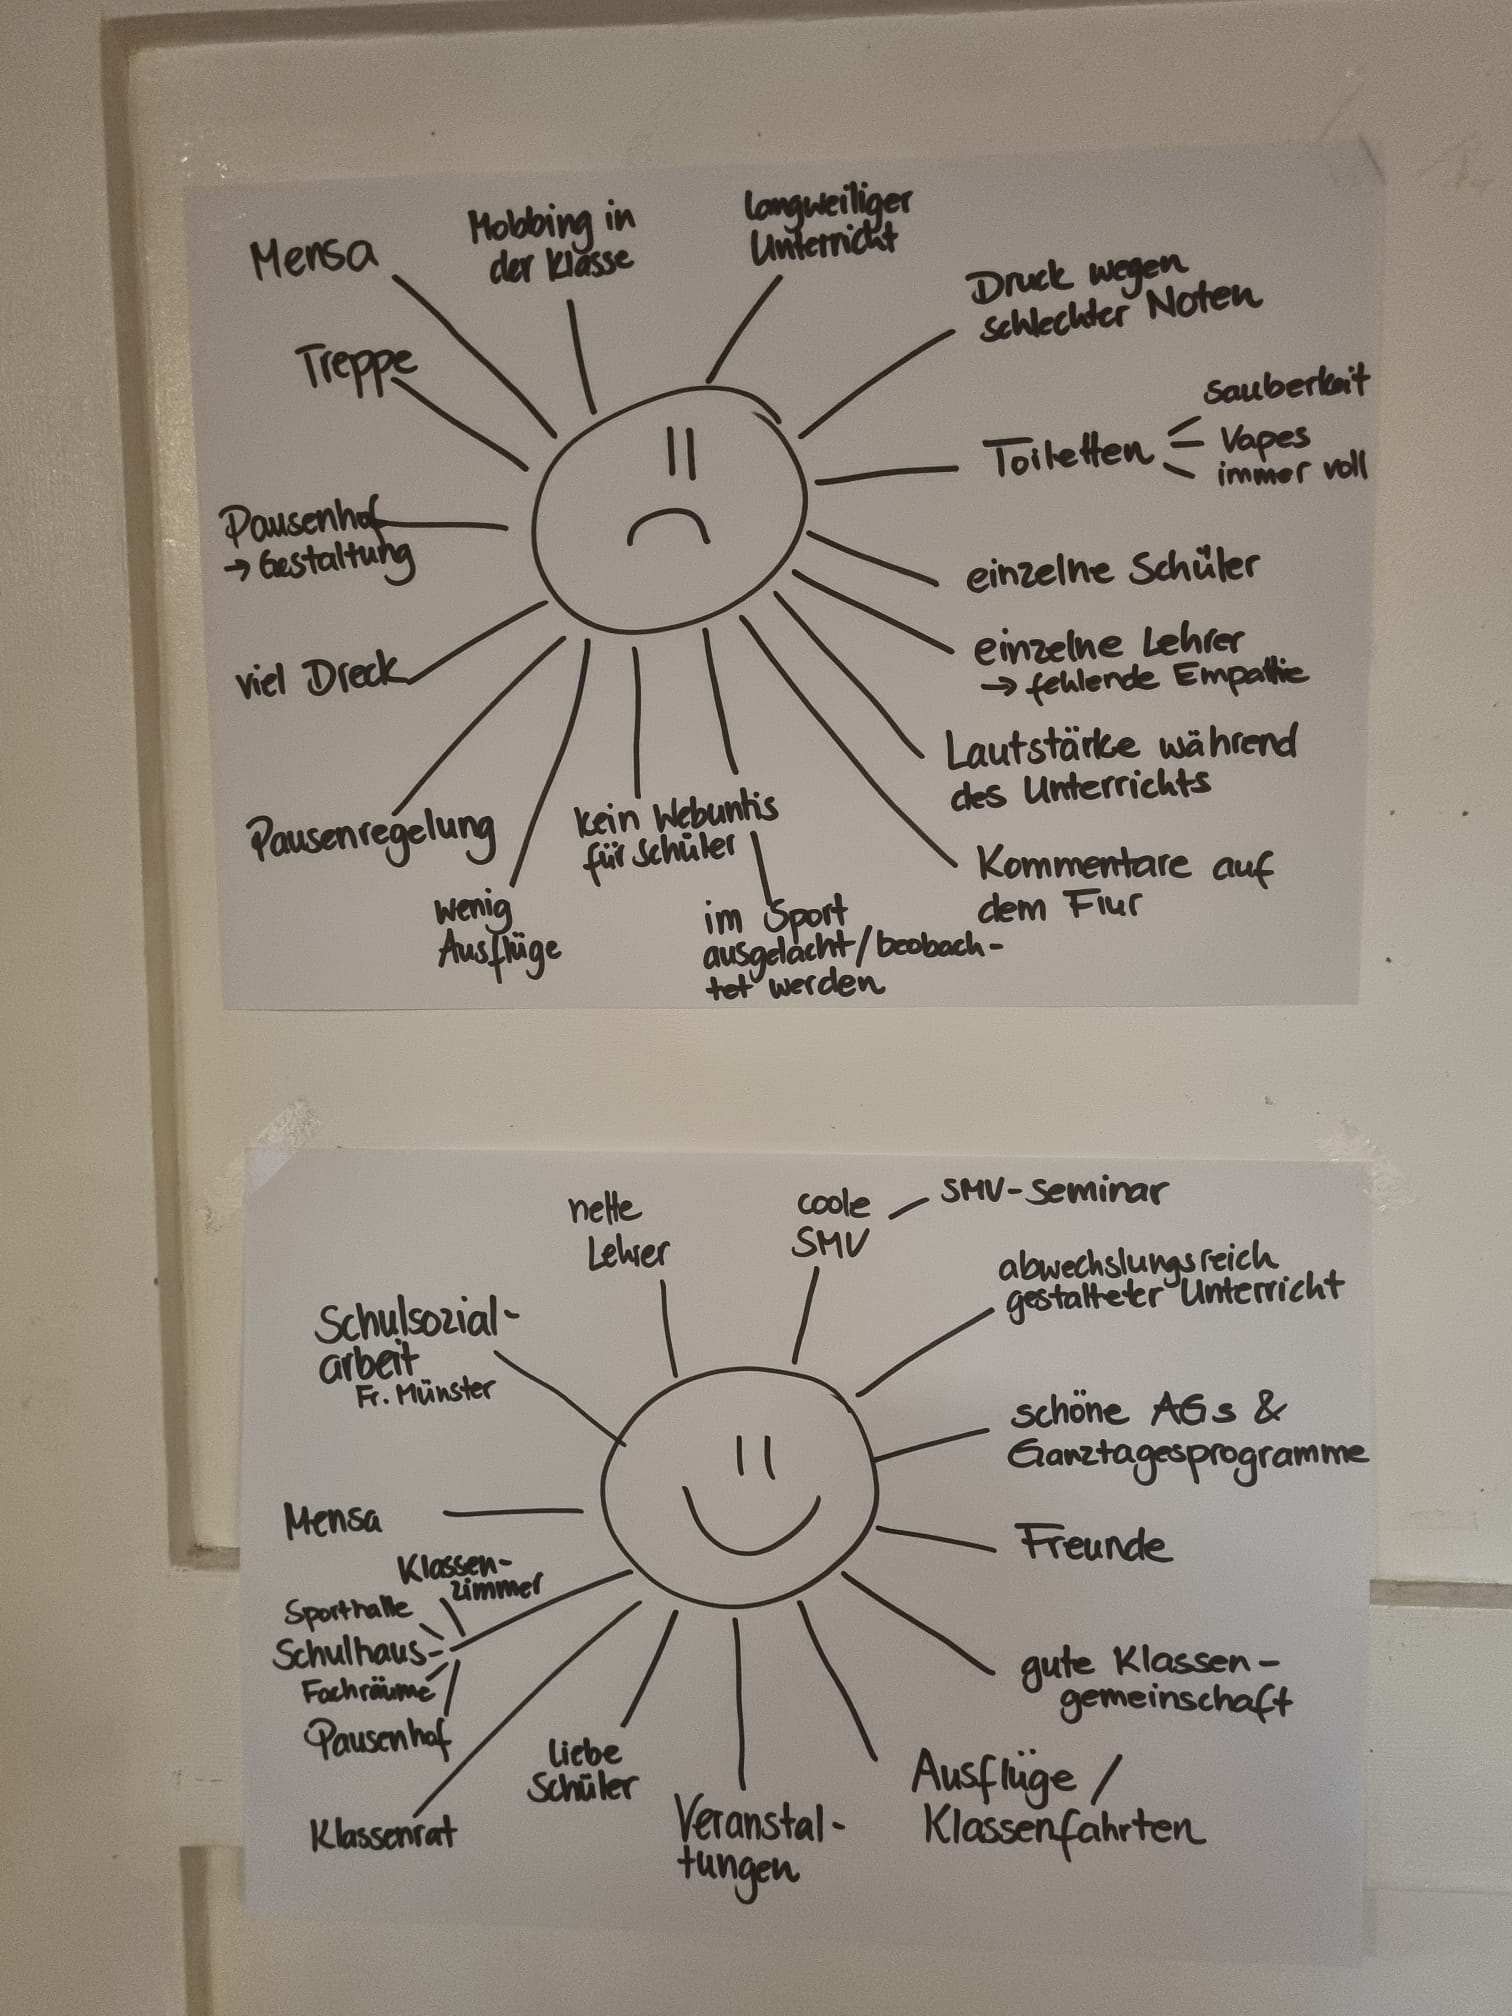 Mensa
Mobbing in
der Klasse
langweiliger
Unterricht
Druck wegen
schlechter Noten
Treppe
Toiletten
sauberkeit
Vapes
immer voll
Pausenhof
→ Gestaltung
einzelne Schüler
einzelne Lehrer
→ fehlende Empathie
viel Dreck
Lautstärke während
des Unterrichts
Pausenregelung
kein Webuntis
für Schüler
Kommentare auf
dem Flur
wenig
Ausflüge
im Sport
ausgelacht/beobach-
tet werden
nette
Lehrer
coole
SMV
SMV-Seminar
abwechslungsreich
gestalteter Unterricht
Schulsozial-
arbeit
Fr. Münster
schöne AGs &
Ganztagesprogramme
Mensa
Freunde
Klassen-
zimmer
Sporthalle
Schulhaus
Fachräume
Pausenhof
gute Klassen-
gemeinschaft
Klassenrat
liebe
Schüler
Veranstal-
tungen
Ausflüge /
Klassenfahrten